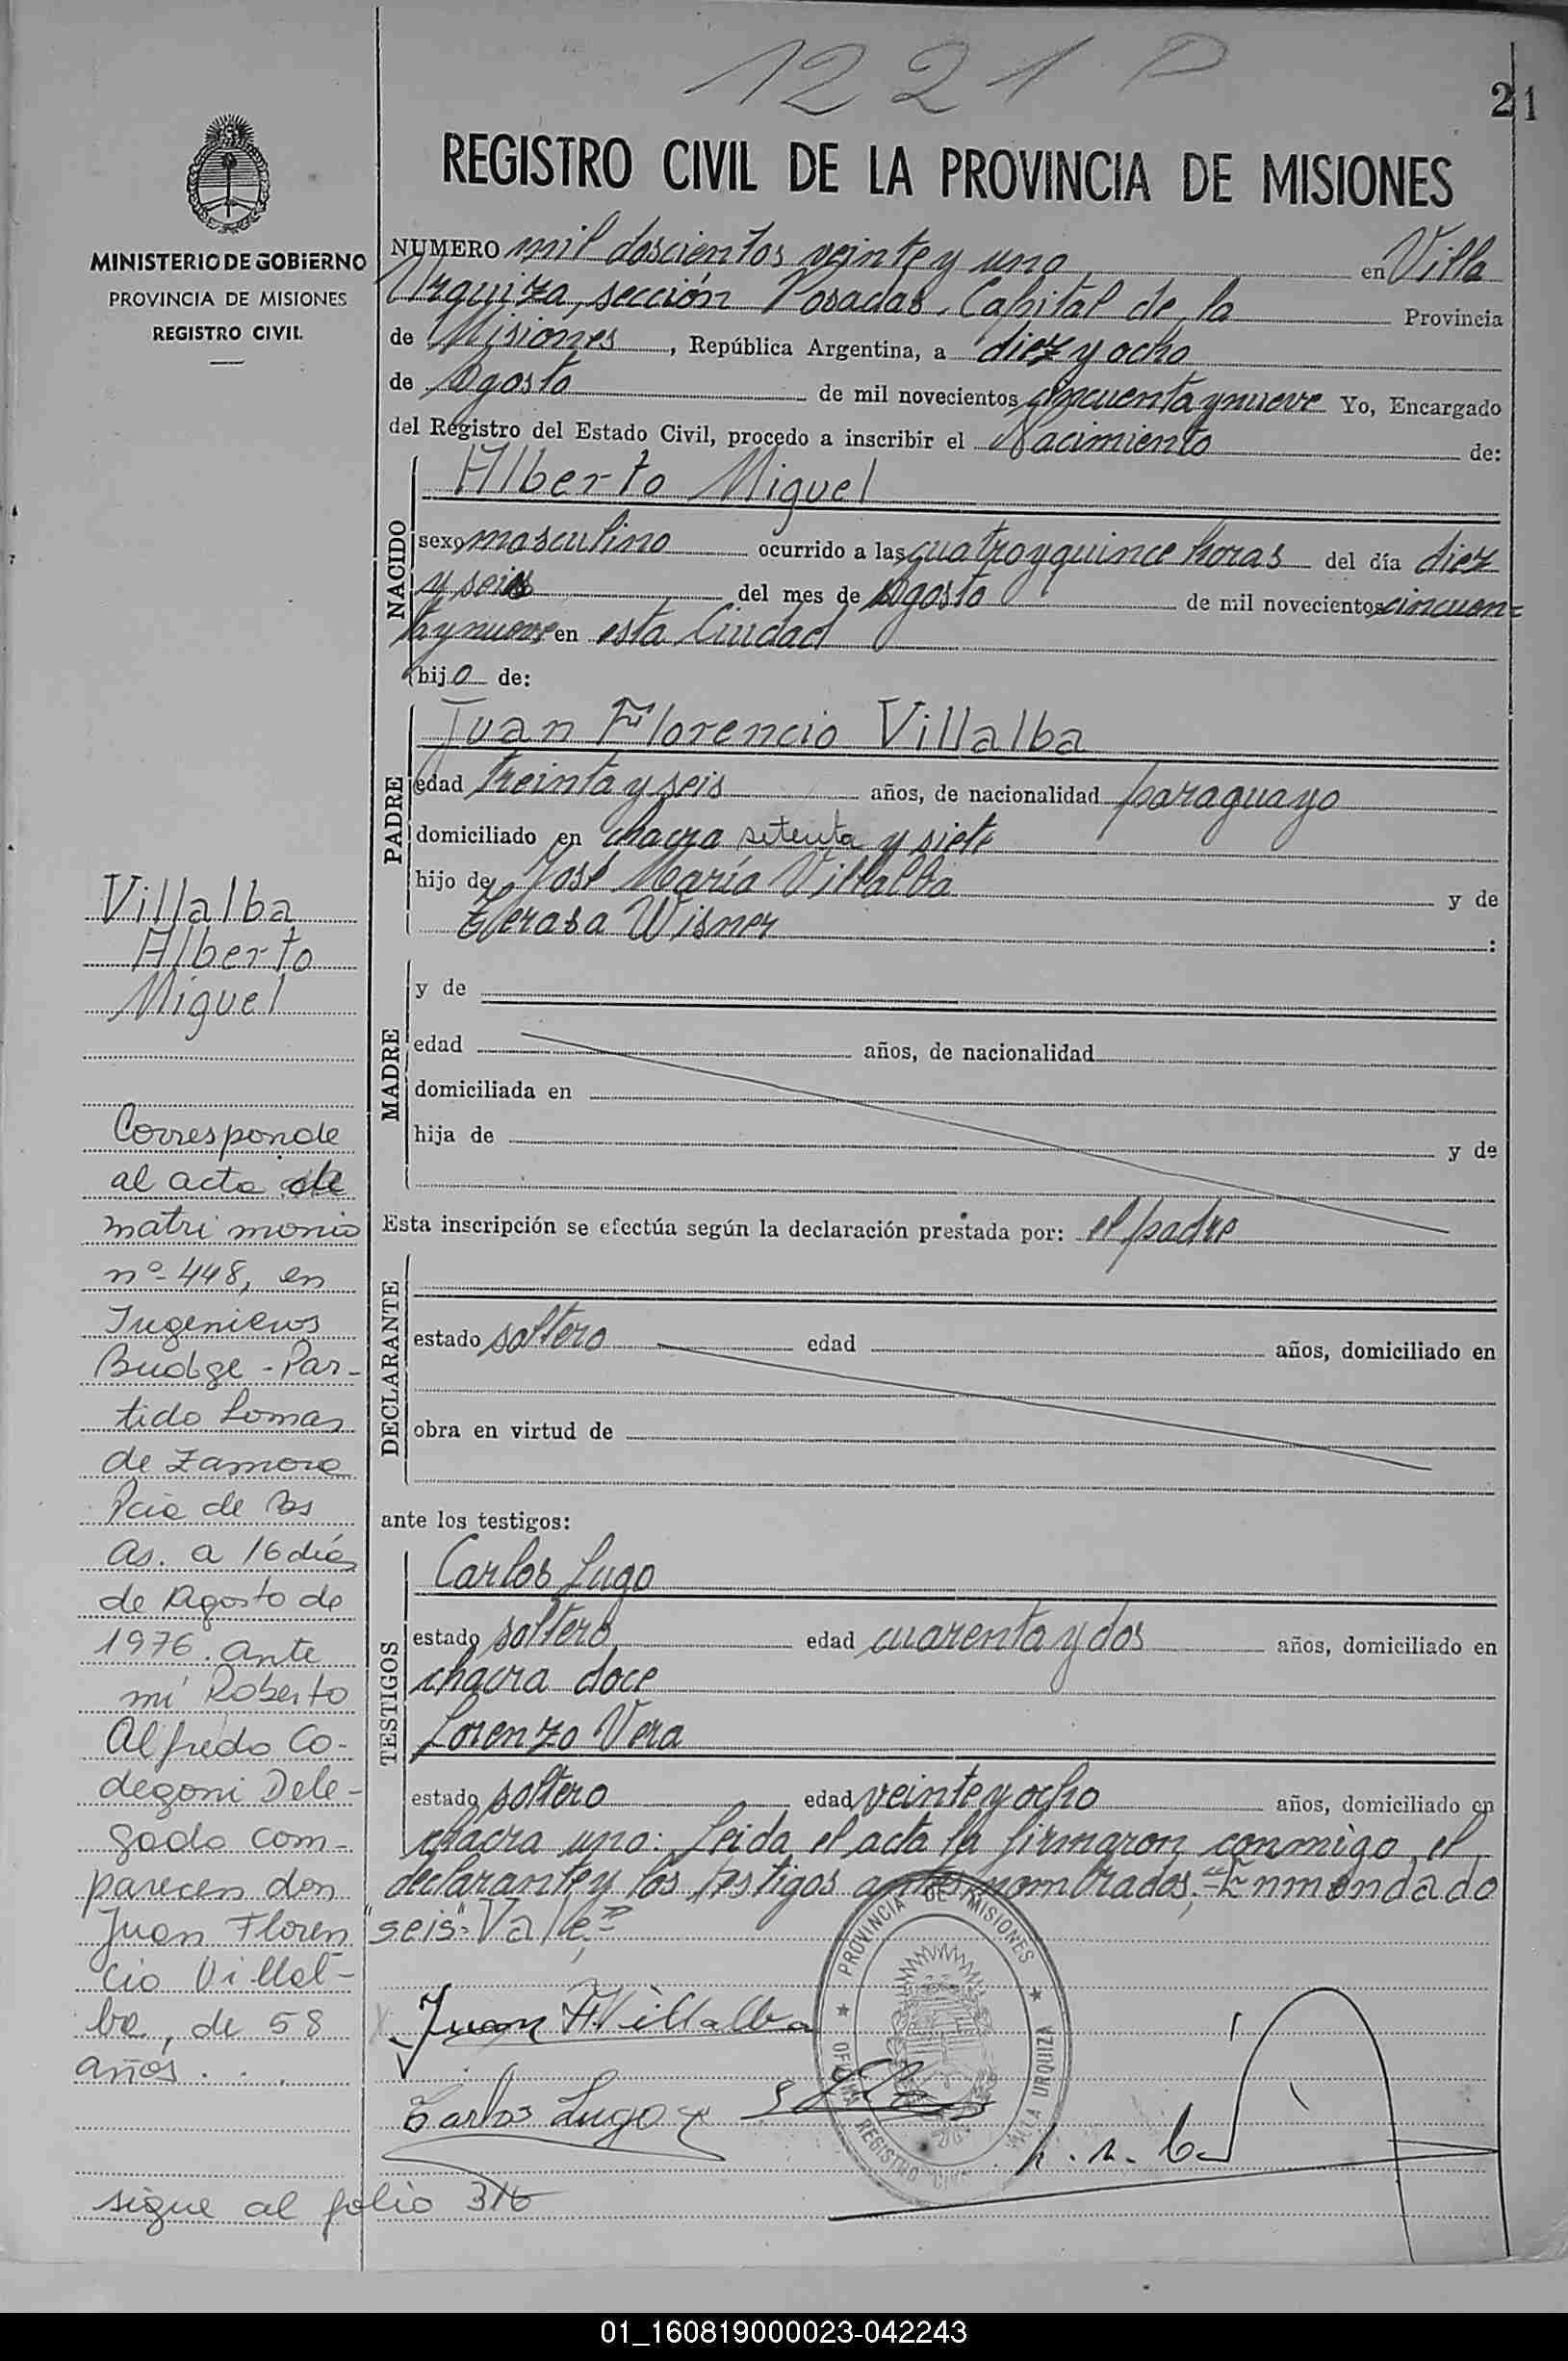 1221 P
21
REGISTRO CIVIL DE LA PROVINCIA DE MISIONES
MINISTERIO DE GOBIERNO
PROVINCIA DE MISIONES
REGISTRO CIVIL
NUMERO mil doscientos veinte y uno en Villa
Urquiza, sección Posadas, Capital de la Provincia
de Misiones, República Argentina, a diez y ocho
de Agosto de mil novecientos cincuenta y nueve Yo, Encargado
del Registro del Estado Civil, procedo a inscribir el Nacimiento de:
NACIDO
Alberto Miguel
sexo masculino ocurrido a las cuatro y quince horas del día diez
y seis del mes de Agosto de mil novecientos cincuen=
ta y nueve en esta Ciudad
hijo de:
PADRE
Juan Florencio Villalba
edad treinta y seis años, de nacionalidad paraguayo
domiciliado en chacra setenta y siete
hijo de José María Villalba y de
Terasa Wisner :
MADRE
y de
edad años, de nacionalidad
domiciliada en
hija de y de
Esta inscripción se efectúa según la declaración prestada por: el padre
DECLARANTE
estado soltero edad años, domiciliado en
obra en virtud de
ante los testigos:
TESTIGOS
Carlos Lugo
estado soltero edad cuarenta y dos años, domiciliado en
chacra doce
Lorenzo Vera
estado soltero edad veinte y ocho años, domiciliado en
chacra uno: Leida el acta la firmaron conmigo el
declarante y los testigos antes nombrados.=Enmendado
"seis"=Vale=
Juan F. Villalba
Carlos Lugo
PROVINCIA DE MISIONES
OFICINA REGISTRO CIVIL
VILLA URQUIZA
Villalba
Alberto
Miguel
Corresponde
al acta de
matrimonio
nº 448, en
Ingenieros
Budge - Par-
tido Lomas
de Zamora
Pcia de Bs
As. a 16 días
de Agosto de
1976. ante
mí Roberto
Alfredo Co-
degoni Dele-
gado com-
parecen don
Juan Floren
cio Villal-
ba, de 58
años . . .
sigue al folio 316
01_160819000023-042243